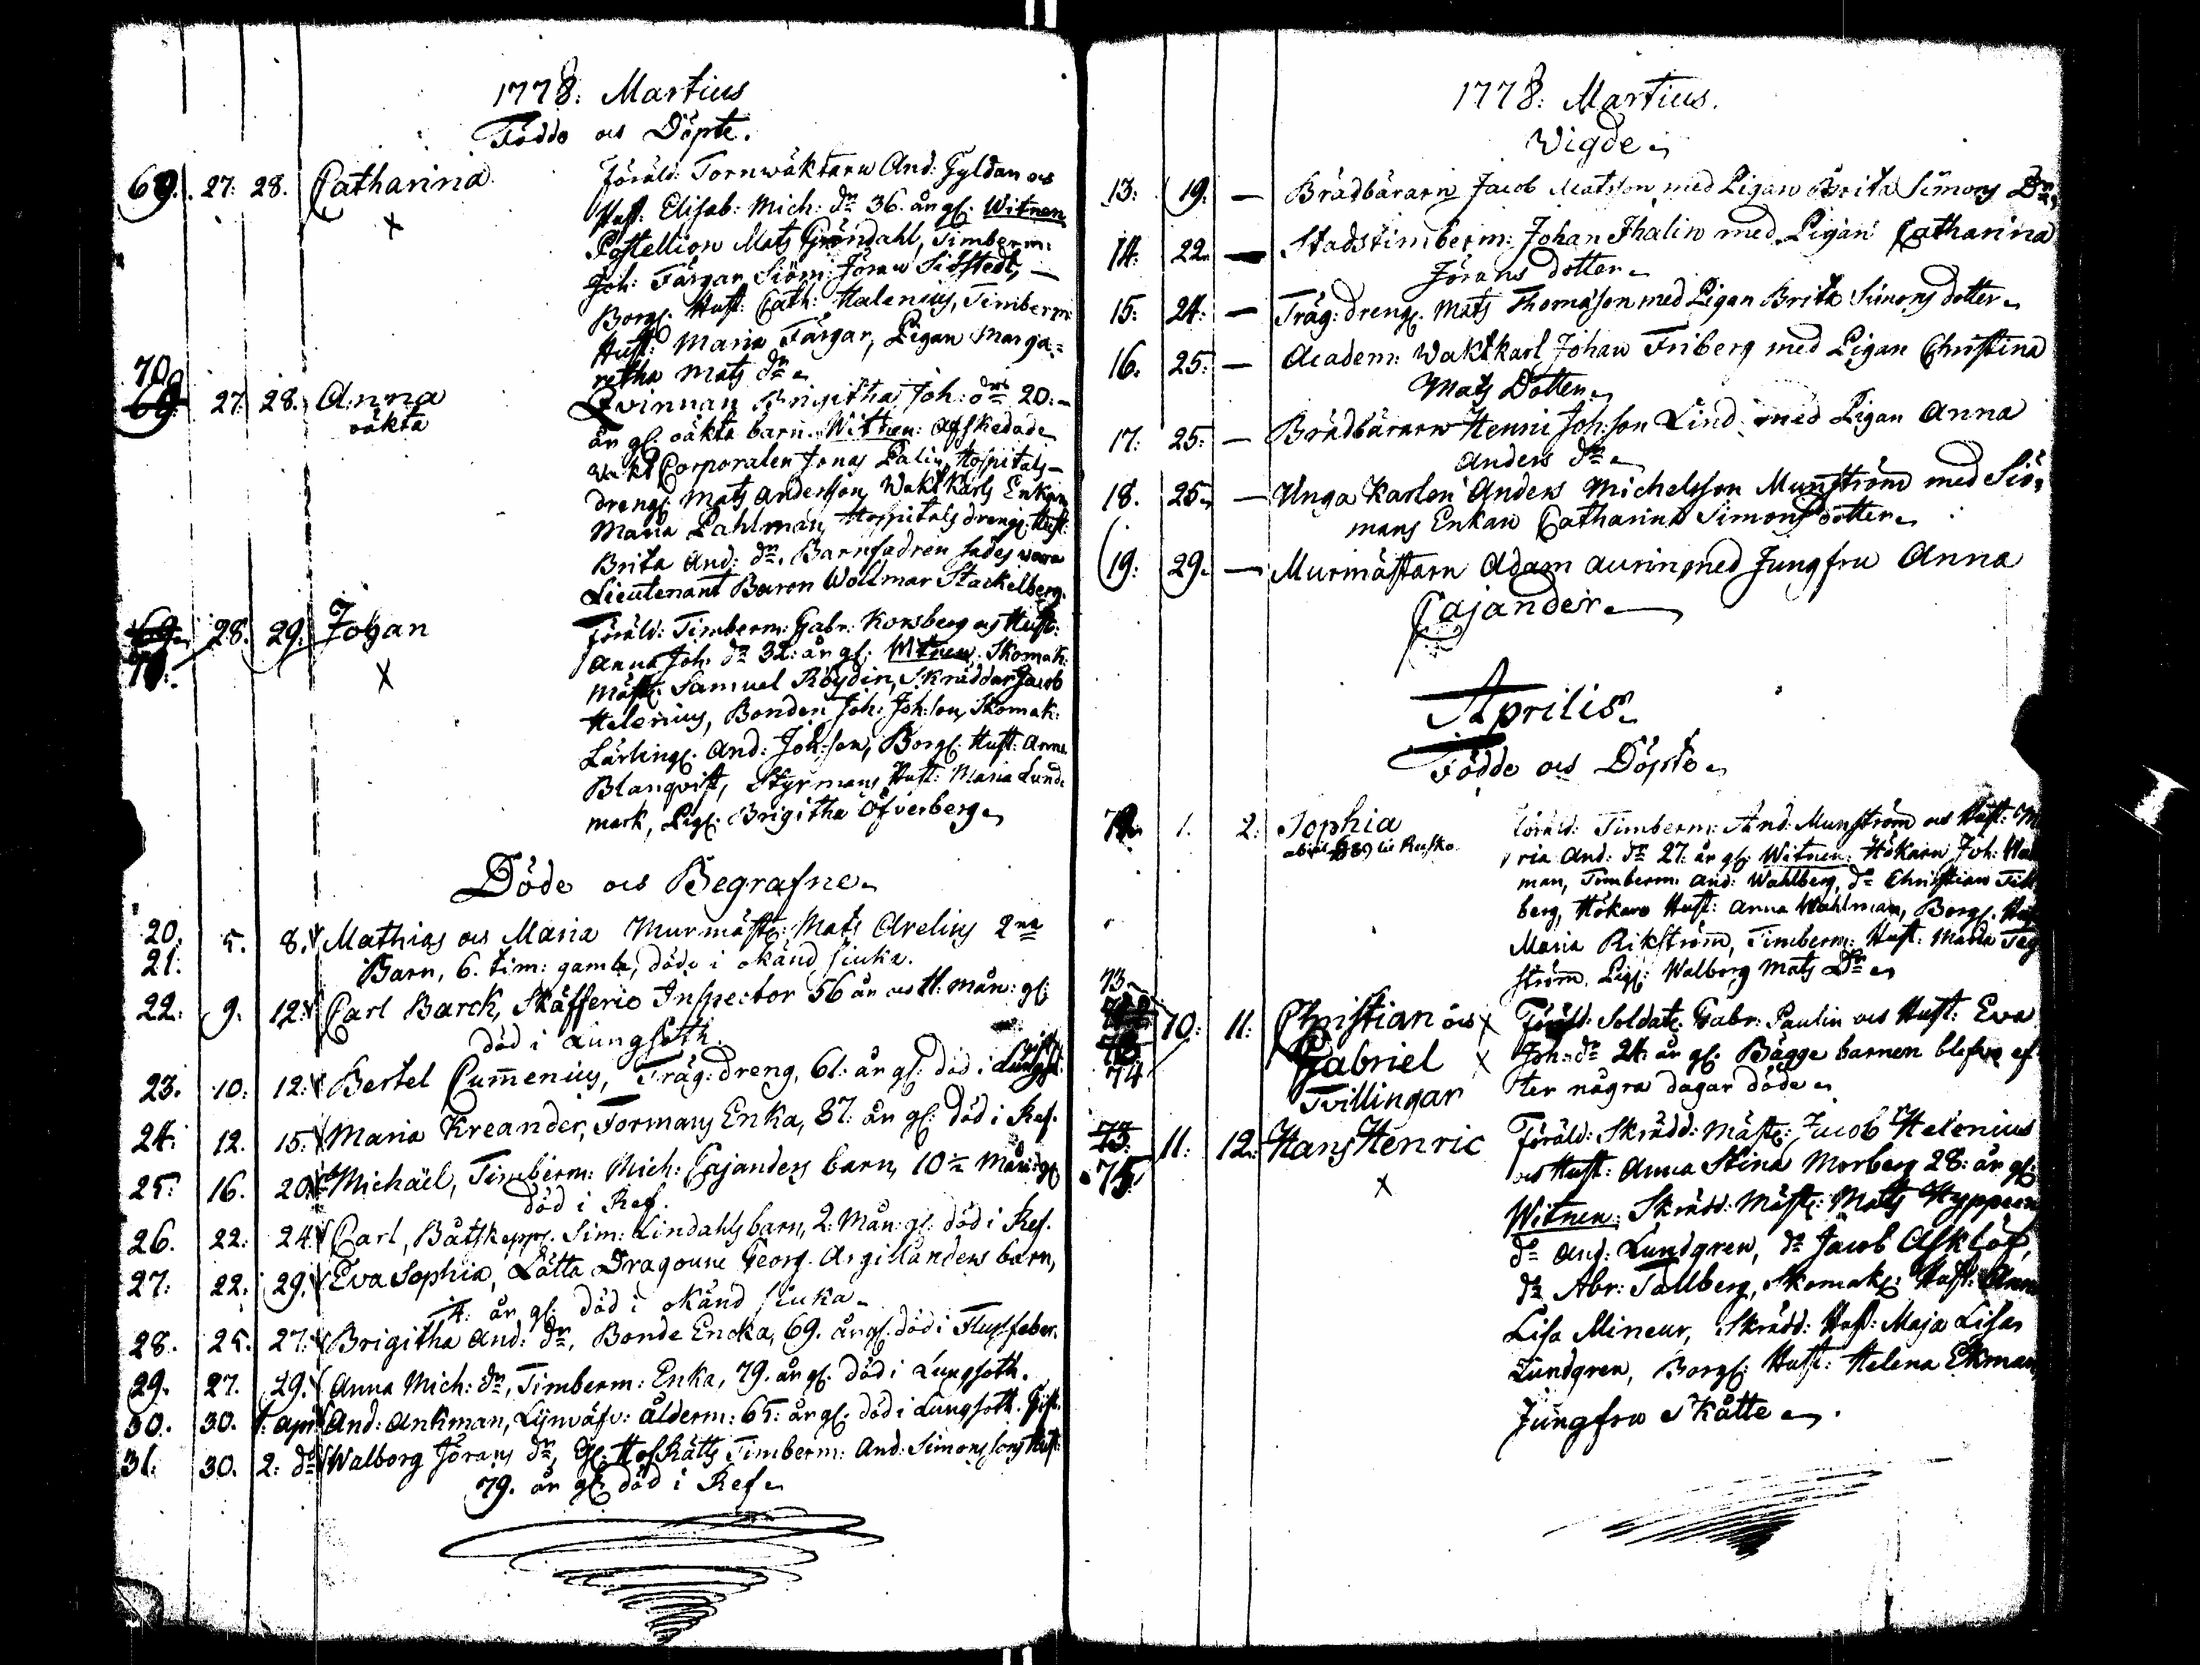 1778: Martius
Födde och Döpte.
69. 27. 28. Catharina Föräld: Tornwäktarn And: Gyldan och
Hust: Elisab: Mich: dr 36. år gl: Witnen
Postellion Mats Gröndahl, Timberm:
Joh: Färgar, Siöm: Jöran Siöstedt, —
Borgs: Hust: Cath: Halenius, Timberm:
Hust: Maria Färgar, Pigan Marga:
retha Mats dr
70. 69. 27. 28. Anna Qvinnan Brigitha Joh: dr 20: —
oäkta år gl: oäkta barn. Witnen: Afskedade
Corporalen Jonas Palin, Hospitals —
drengs: Mats Andersson, Waktkarls Enkan
Maria Pahlman, Hospitals drengs: Hust:
Brita And: dr. Barnfadren sades wara
Lieutenant Baron Wollmar Stackelberg.
69. 28. 29. Johan Föräld: Timberm: Gabr: Konsberg och Hust:
71. Anna Joh: dr 32: år gl: Witnen: Skomak:
mäst: Samuel Röydin, Skräddar Jacob
Helenius, Bonden Joh: Joh:son, Skomak:
Lärlings: And: Joh:son, Borgs: Hust: Anna
Blanqvist, Styrmans Hust: Maria Lund:
mark, Pigs: Brigitha Öfverberg
Döde och Begrafne
20. 5. 8. Mathias och Maria Murmäst: Mats Arelius 2ne
21. Barn, 6. tim: gamle, döde i okänd siuka.
22. 9. 12. Carl Barck, Skäfferie Inspector 56 år och 11. mån: gl:
död i Lungsoth.
23. 10. 12. Bertel Cumenius, Träg: dreng, 61: år gl: död i Lungst:
24. 12. 15. Maria Kreander, Formans Enka, 87. år gl: död i Ref.
25. 16. 20. Michäel, Timberm: Mich: Cajanders barn, 10½ Mån: gl:
död i Ref.
26. 22. 24. Carl, Båtskepps: Sim: Lindahls barn, 2: Mån: gl: död i Ref.
27. 22. 29. Eva Sophia, Lätta Dragoune Georg Argillanders barn,
4: år gl: död i okänd siuka.
28. 25. 27. Brigitha And: dr, Bonde Encka, 69. år gl: död i Flussfeber.
29. 27. 29. Anna Mich: dr, Timberm: Enka, 79. år gl: död i Lungsoth.
30. 30. 1. apr: And: Ankman, Lijnväfv: ålderm: 65: år gl: död i Lungsoth. Gift.
31. 30. 2: do Walborg Jörans dr, Gl: HofRätts Timberm: And: Simonssons Hust:
79. år gl: död i Ref
1778: Martius.
Wigde
13. 19. — Brädbärarn Jacob Matsson med Pigan Brita Simons Dr
14. 22. — Stadstimberm: Johan Thalin med Pigan Catharina
Jörans dotter
15. 24. — Träg: dreng: Mats Thomasson med Pigan Brita Simons dotter
16. 25. — Academ: Waktkarl Johan Friberg med Pigan Christina
Mats Dotter
17. 25. — Brädbärarn Henric Joh:son Lind med Pigan Anna
Anders dr
18. 25. — Unga Karlen Anders Michelsson Munström med Siö:
mans Enkan Catharina Simons dotter
19. 29. — Murmästarn Adam Aurin med Jungfru Anna
Cajander
Aprilis
Födde och Döpte
72. 1. 2. Sophia Föräld: Timberm: And: Munström och Hust: Ma
ria And: dr 27: år gl: Witnen: Hökarn Joh: Wal
man, Timberm: And: Wahlberg, do Christian
berg, Hökare Hust: Anna Wahlman, Borgs. Hust
Maria Rikström, Timberm: Hust: Maria Teg
ström, Pigs: Walborg Mats Dr
73.
10. 11. Christian och Föräld: Soldat: Gabr: Paulin och Hust: Eva
Gabriel Joh: dr 24: år gl: Bägge barnen blefvo ef:
74. Tvillingar ter några dagar döde
75. 11. 12. Hans Henric Föräld: Skrädd: Mäst: Jacob Helenius
75. och Hust: Anna Stina Morberg 28: år gl:
Witnen: Skrädd: Mäst: Mats Hyppen
do And: Lundgren, do Jacob Asklöf,
do Abr: Tallberg, Skomak: Hust: Anna
Lisa Mineur, Skrädd: Hust: Maja Lisa
Lundgren, Borgs: Hust: Helena Ekman
Jungfru Skåtte